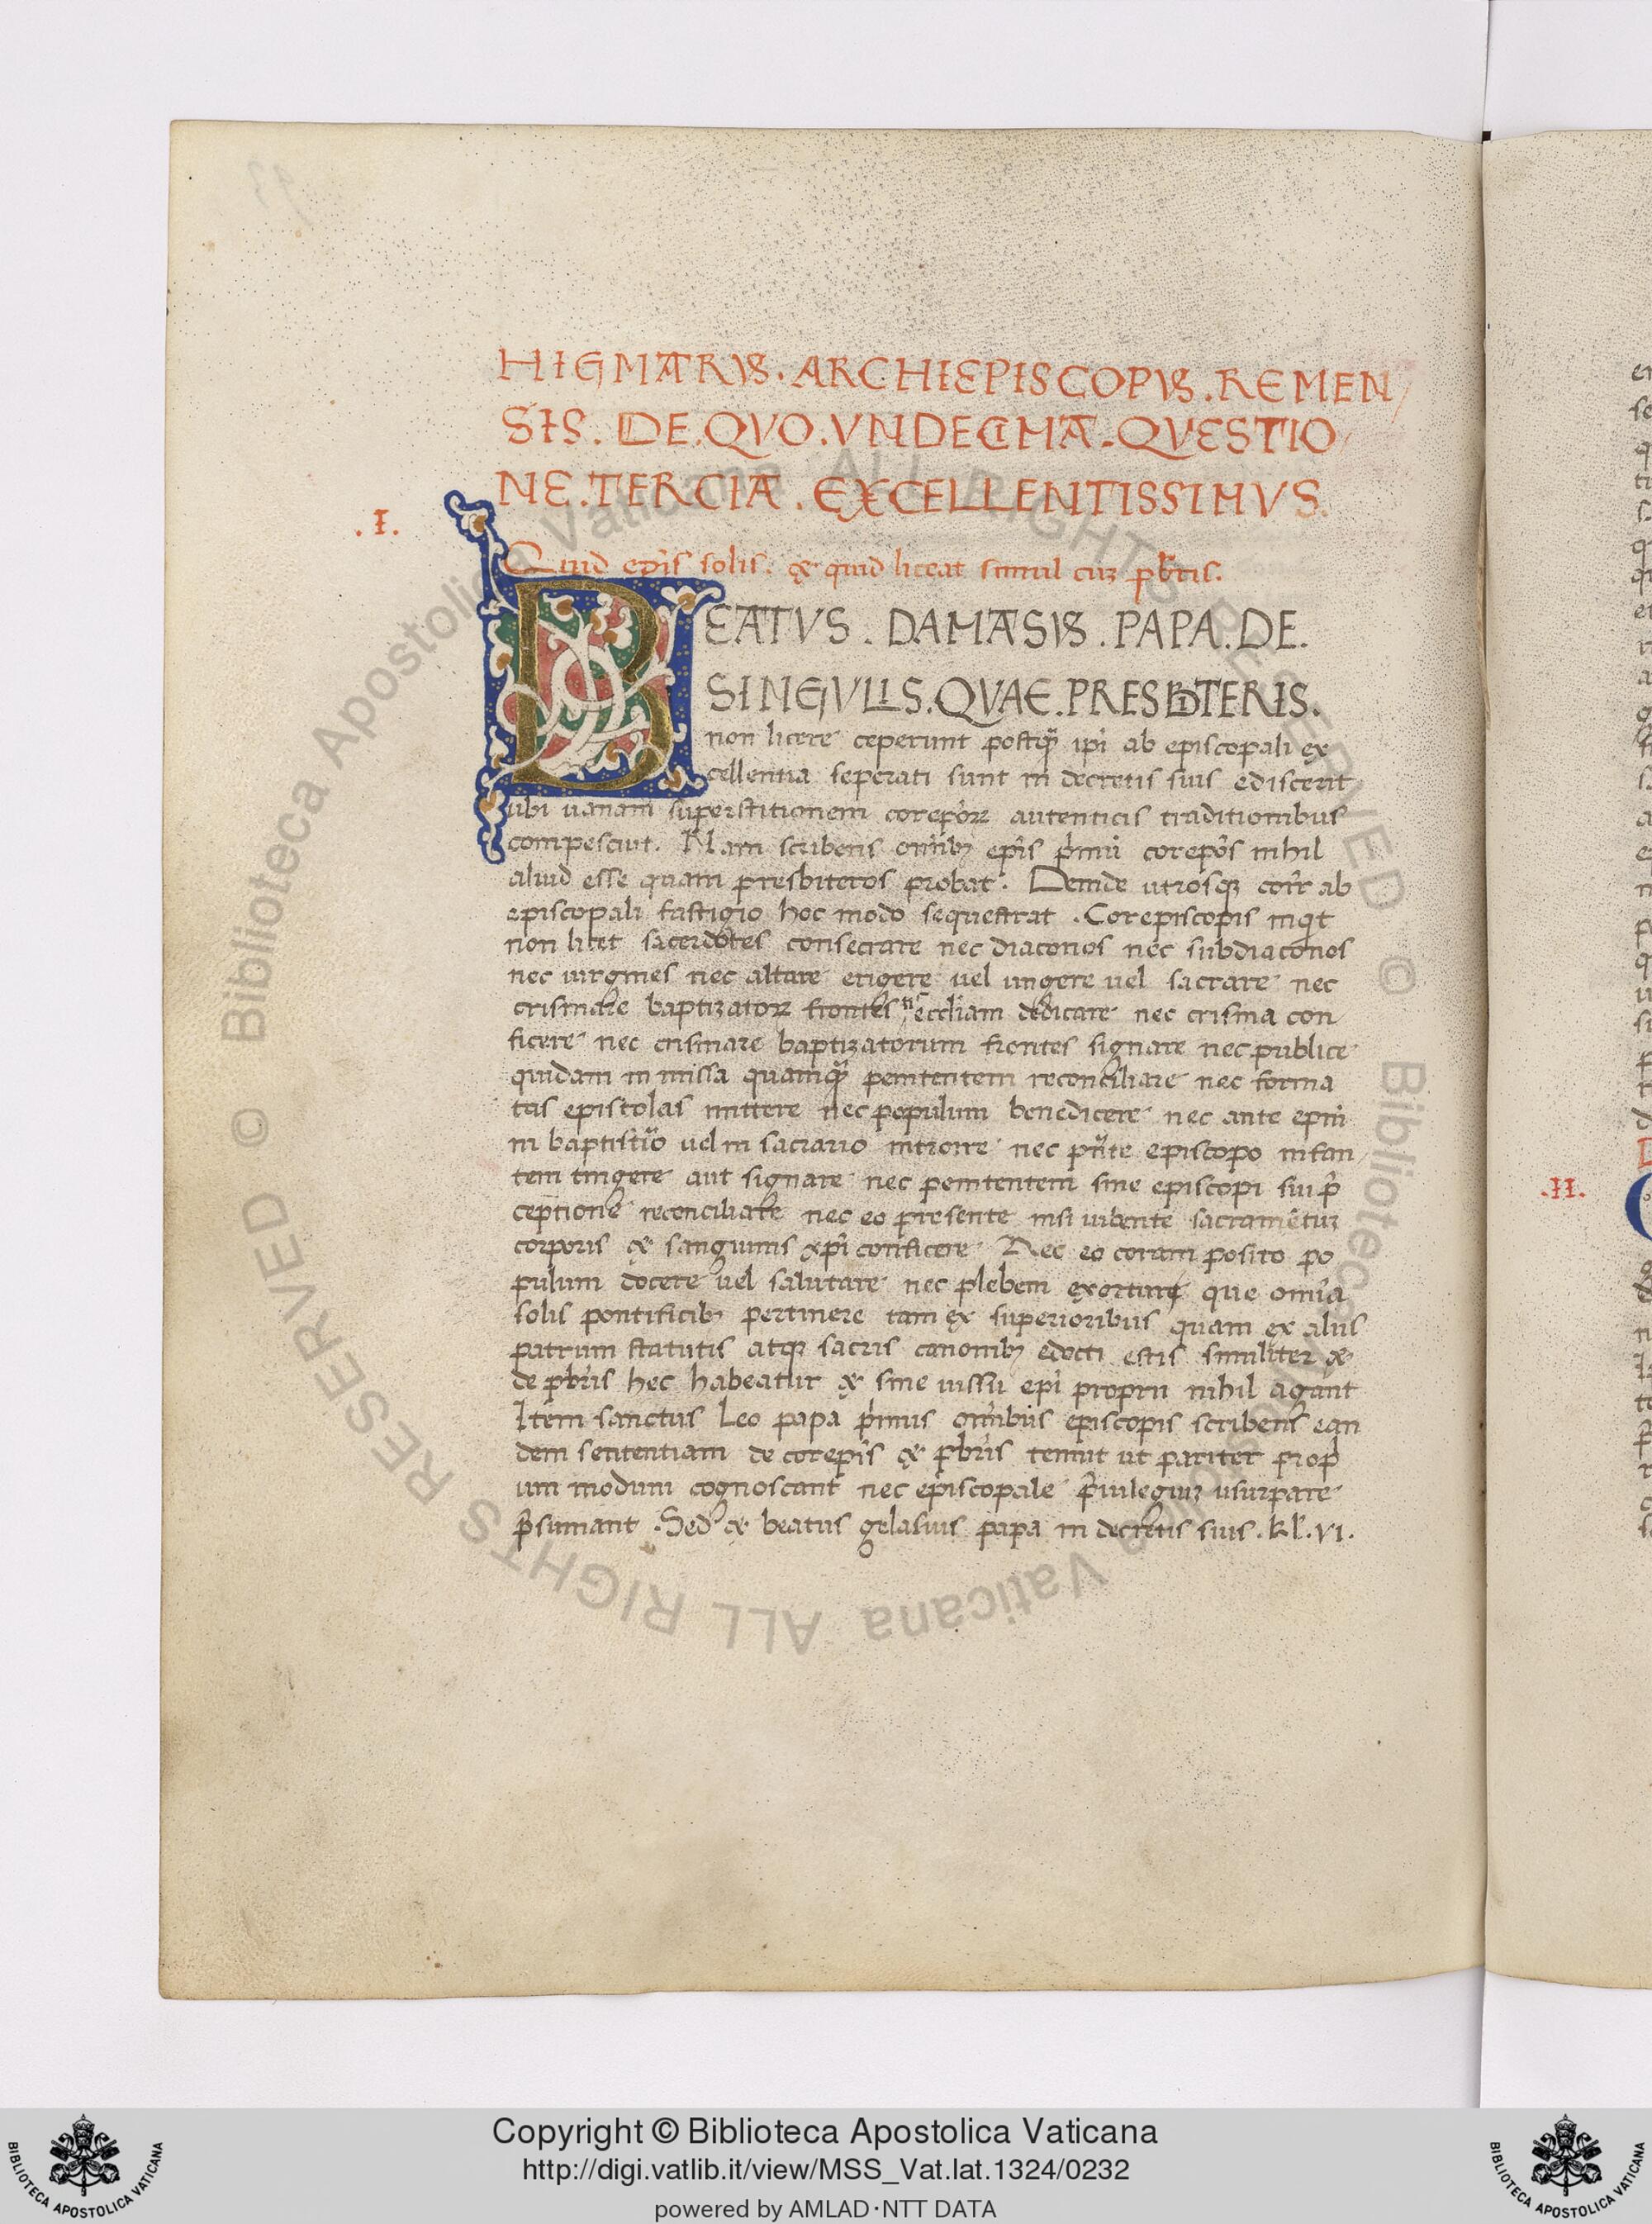 HIGMARVS. ARCHIEPISCOPVS. REMEN/
SIS. DE. QVO. VNDECIMA. QVESTIO
NE. TERCIA. EXCELLENTISSIMVS.
.I.
Quid ep̄is solis. & quid liceat simul cuʒ p̄bris.
BEATVS. DAMASVS. PAPA. DE.
SINGVLIS. QVAE. PRESBITERIS.
non licere ceperunt postq̄ ip̄i ab episcopali ex
cellentia seperati sunt in decretis suis ediscerit
ubi uanam superstitionem corep̄orꝝ autenticis traditionibus
compescuit. Nam scribens om̄ibꝫ ep̄is p̄mū corep̄os nihil
aliud esse quam presbiteros probat. Deinde utrosqꝫ ab
episcopali fastigio hoc modo sequestrat. Corepiscopis inqt
non licet sacerdotes consecrare nec diaconos nec subdiaconos
nec uirgines nec altare erigere uel ungere uel sacrare nec
crismare baptizatorꝝ frontes nͨ eccl̄iam dedicare nec crisma con
ficere nec crismare baptizatorum frontes signare nec publice
quidam in missa quamq̄ penitentem reconciliare nec forma
tas epistolas mittere nec populum benedicere nec ante ep̄m
in baptist̄io uel in sacrario introire nec p̄nte episcopo infan
tem tingere aut signare nec penitentem sine episcopi sui p̄
ceptione reconciliare nec eo presente nisi iubente sacramētuʒ
corporis & sanguinis xp̄i conficere Nec eo coram posito po
pulum docere uel salutare nec plebem exortare que om̄ia
solis pontificibꝫ pertinere tam ex superioribus quam ex aliis
patrum statutis atqꝫ sacris canonibꝫ edocti estis similiter &
de p̄bris hec habeatur & sine iussu ep̄i proprii nihil agant
Item sanctus Leo papa p̄mus om̄ibus episcopis scribens ean
dem sententiam de corep̄is & p̄bris tenuit ut pariter prop̄
um modum cognoscant nec episcopale p̄uilegiuʒ usurpare
p̄sumant. Sed & beatus gelasius papa in decretis suis. kl̄. VI.
.II.
Copyright © Biblioteca Apostolica Vaticana
http://digi.vatlib.it/view/MSS_Vat.lat.1324/0232
powered by AMLAD·NTT DATA
BIBLIOTECA APOSTOLICA VATICANA
BIBLIOTECA APOSTOLICA VATICANA
© Biblioteca Apostolica Vaticana ALL RIGHTS RESERVED © Biblioteca Apostolica Vaticana ALL RIGHTS RESERVED